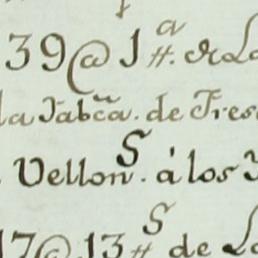 39@ 1 #.ª de La
la Fabcca. de Tres
Vellon.S á los
17@ 13 #S de La